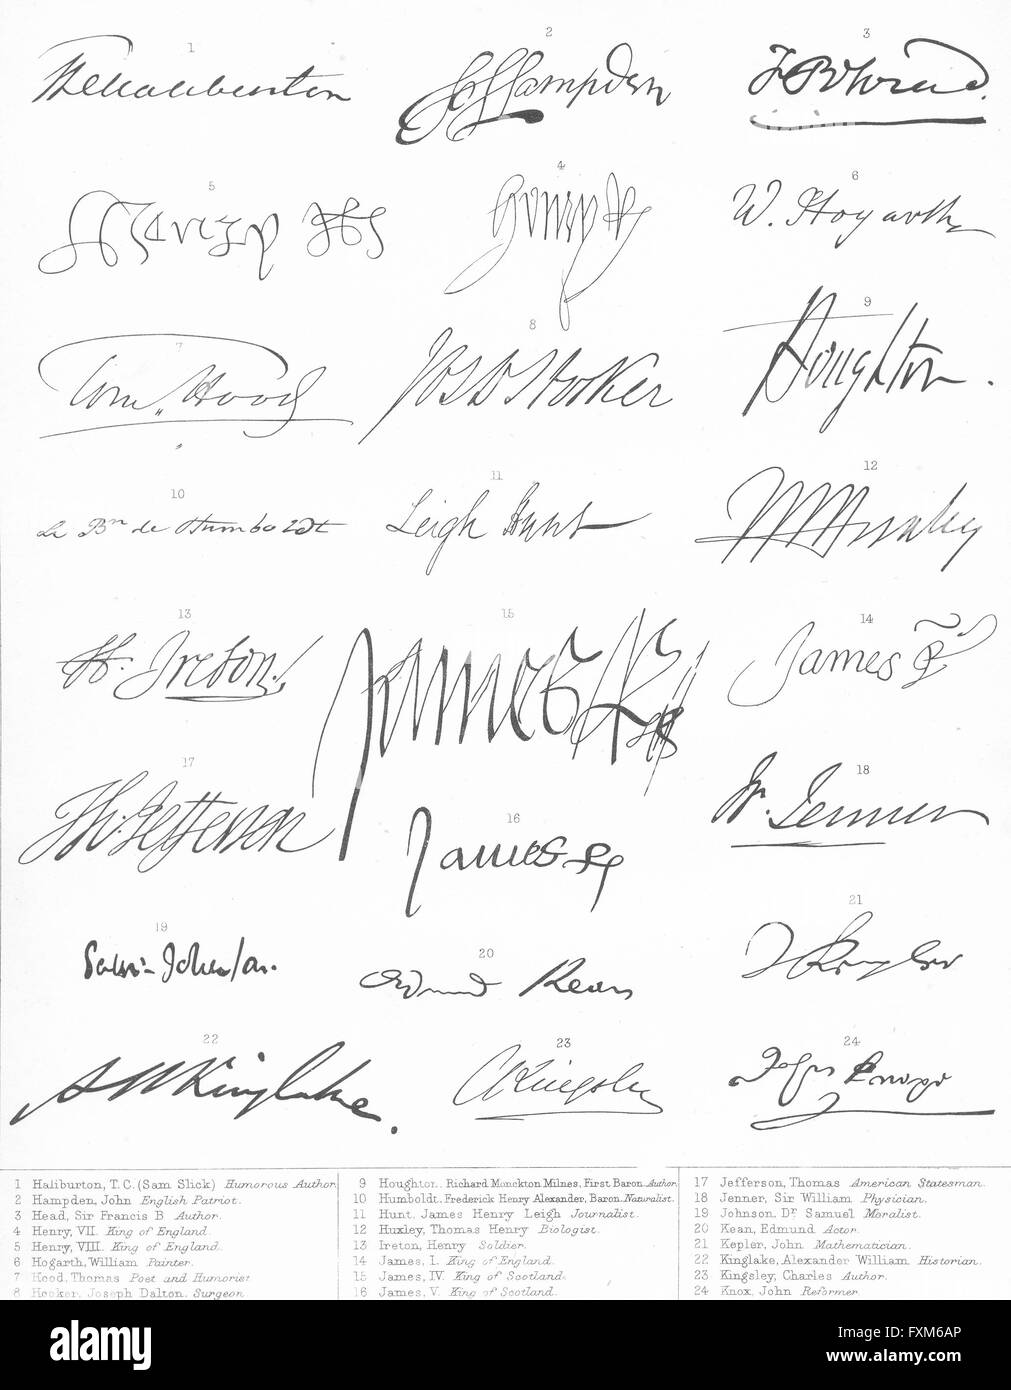 1 2 3
THaliburton JoHampden F B Head.
5 4 6
Henry R W. Hogarth
7 8 9
Tom Hood Jos D Hooker Houghton.
10 11 12
Le Bn de Humboldt Leigh Hunt THHuxley
13 15 14
H. Ireton James R James R
17 16 18
Th. Jefferson James R Wm. Jenner
19 20 21
Sam: Johnson. Edmund Kean J Kepler
22 23 24
A W Kinglake. C Kingsley Johne Knox
1 Haliburton, T. C. (Sam Slick) Humorous Author
2 Hampden, John English Patriot.
3 Head, Sir Francis B Author.
4 Henry, VII. King of England.
5 Henry, VIII. King of England.
6 Hogarth, William Painter.
7 Hood, Thomas Poet and Humorist
8 Hooker, Joseph Dalton, Surgeon
9 Houghton, Richard Monckton Milnes, First Baron Author.
10 Humboldt, Frederick Henry Alexander, Baron. Naturalist.
11 Hunt, James Henry Leigh Journalist.
12 Huxley, Thomas Henry Biologist.
13 Ireton, Henry Soldier.
14 James, I. King of England.
15 James, IV. King of Scotland.
16 James, V. King of Scotland.
17 Jefferson, Thomas American Statesman.
18 Jenner, Sir William Physician.
19 Johnson, Dr Samuel Moralist.
20 Kean, Edmund Actor.
21 Kepler, John Mathematician.
22 Kinglake, Alexander William Historian.
23 Kingsley, Charles Author.
24 Knox, John Reformer
alamy stock photo
FXM6AP
www.alamy.com